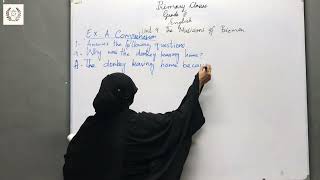 Primary Classes
Grade 5
English
Unit 9 The Musicians of Bremen
Ex. A Comprehension
1- Answer the following questions
Why was the donkey leaving home?
A- The donkey leaving home becau